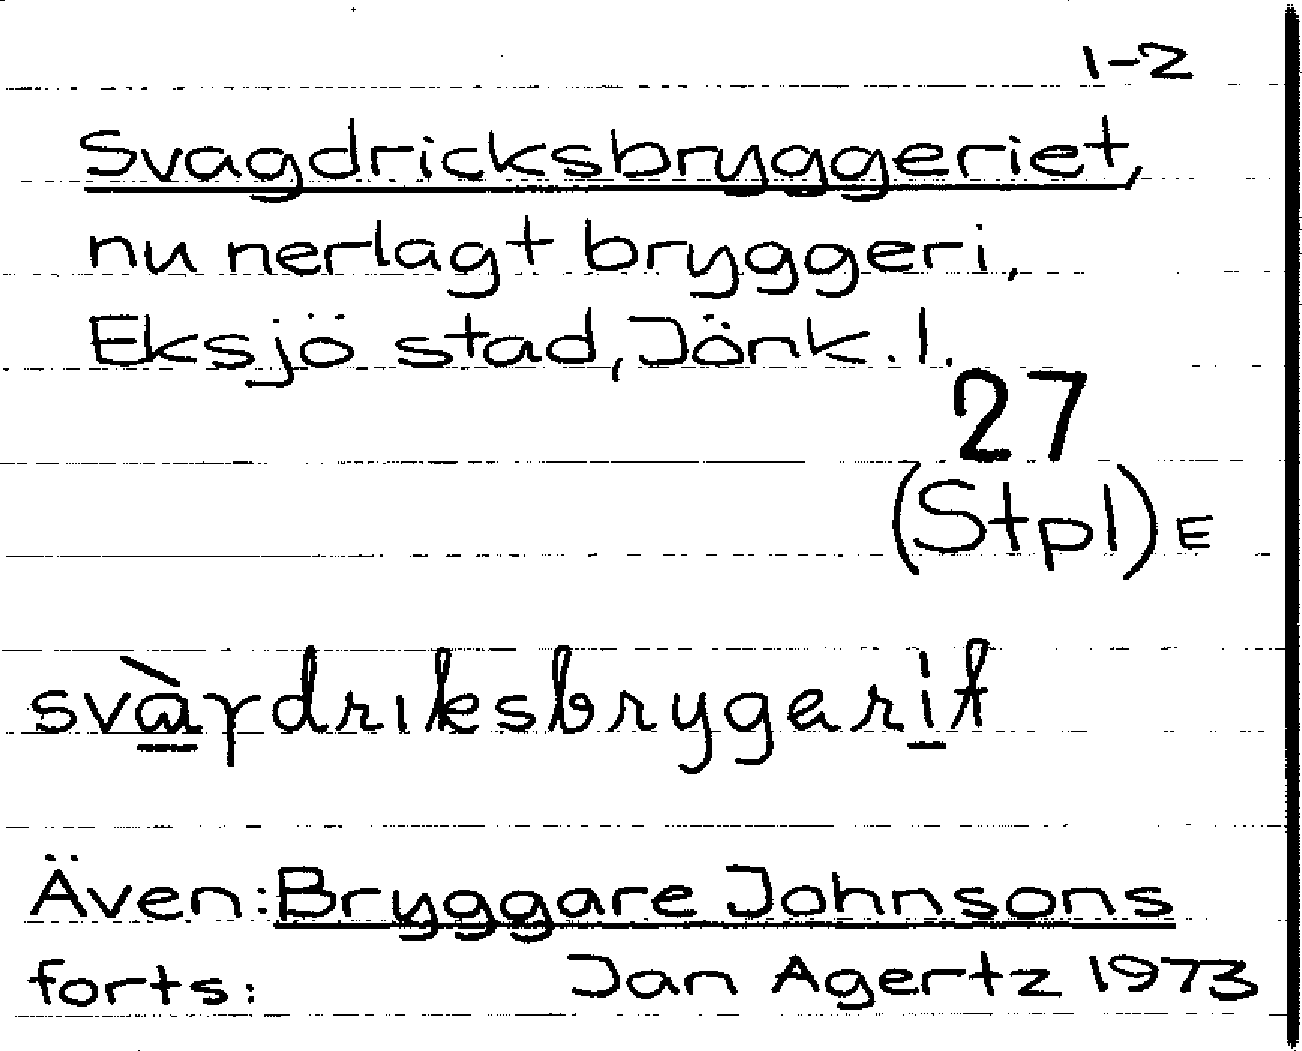 1-2
Svagdricksbryggeriet,
nu nerlagt bryggeri,
Eksjö stad, Jönk. l.
27
(Stpl) E
svàɤdrıksbrygerit
Även: Bryggare Johnsons
forts: Jan Agertz 1973